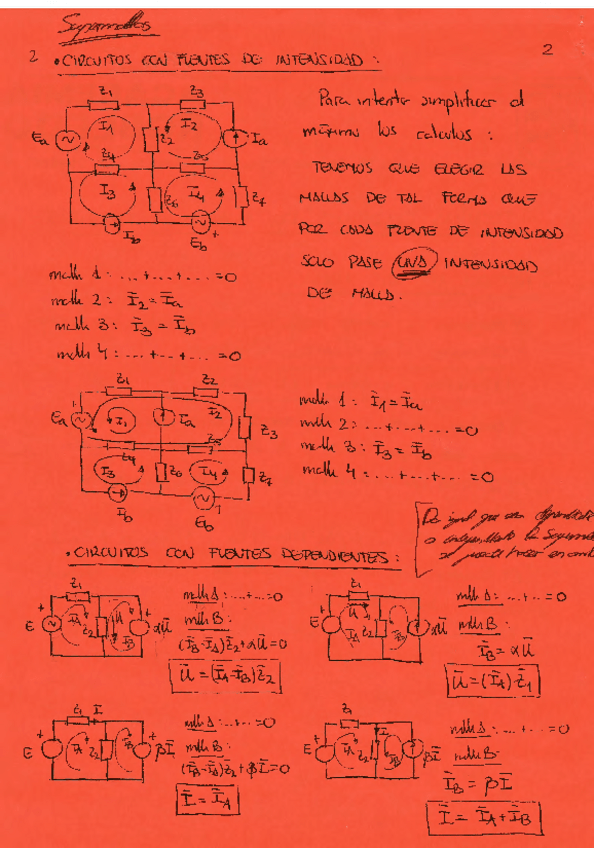 Supermallas
2 • CIRCUITOS CON FUENTES DE INTENSIDAD : 2
Z1 Z3
Ea I1 Z2 I2 Ia
Z4 Z5
I3 Z6 I4 Z7
Ib Eb
Para intentar simplificar al
máximo los calculos :
TENEMOS QUE ELEGIR LAS
MALLAS DE TAL FORMA QUE
POR CADA FUENTE DE INTENSIDAD
SOLO PASE UNA INTENSIDAD
DE MALLA.
malla 1: ...+...+... =0
malla 2: I̅2 = I̅a
malla 3: I̅3 = I̅b
malla 4: ...+...+... =0
Z1 Z2
Ea I1 Ia I2 Z3
Z4 Z5
I3 Z6 I4 Z7
Ib Eb
malla 1: I̅1 = I̅a
malla 2: ...+...+... =0
malla 3: I̅3 = I̅b
malla 4: ...+...+... =0
Da igual que sean dependientes
o
• CIRCUITOS CON FUENTES DEPENDIENTES :
Z1
E + IA Z2 U IB + αU̅
malla A: ...+... =0
malla B:
(I̅B-I̅A)Z̅2+αU̅=0
U̅=(I̅A-I̅B)Z̅2
Z1
E + U IA Z2 IB αU̅
malla A: ...+...=0
malla B:
I̅B=αU̅
U̅=(I̅A)·Z̅1
Z1 I
E + IA Z2 IB + βI̅
malla A: ...+...=0
malla B:
(I̅A-I̅A)Z̅2+βI̅=0
I̅=I̅A
Z1
E + IA Z2 I IB βI̅
malla A: ...+...=0
malla B:
I̅B=βI̅
I̅=I̅A+I̅B